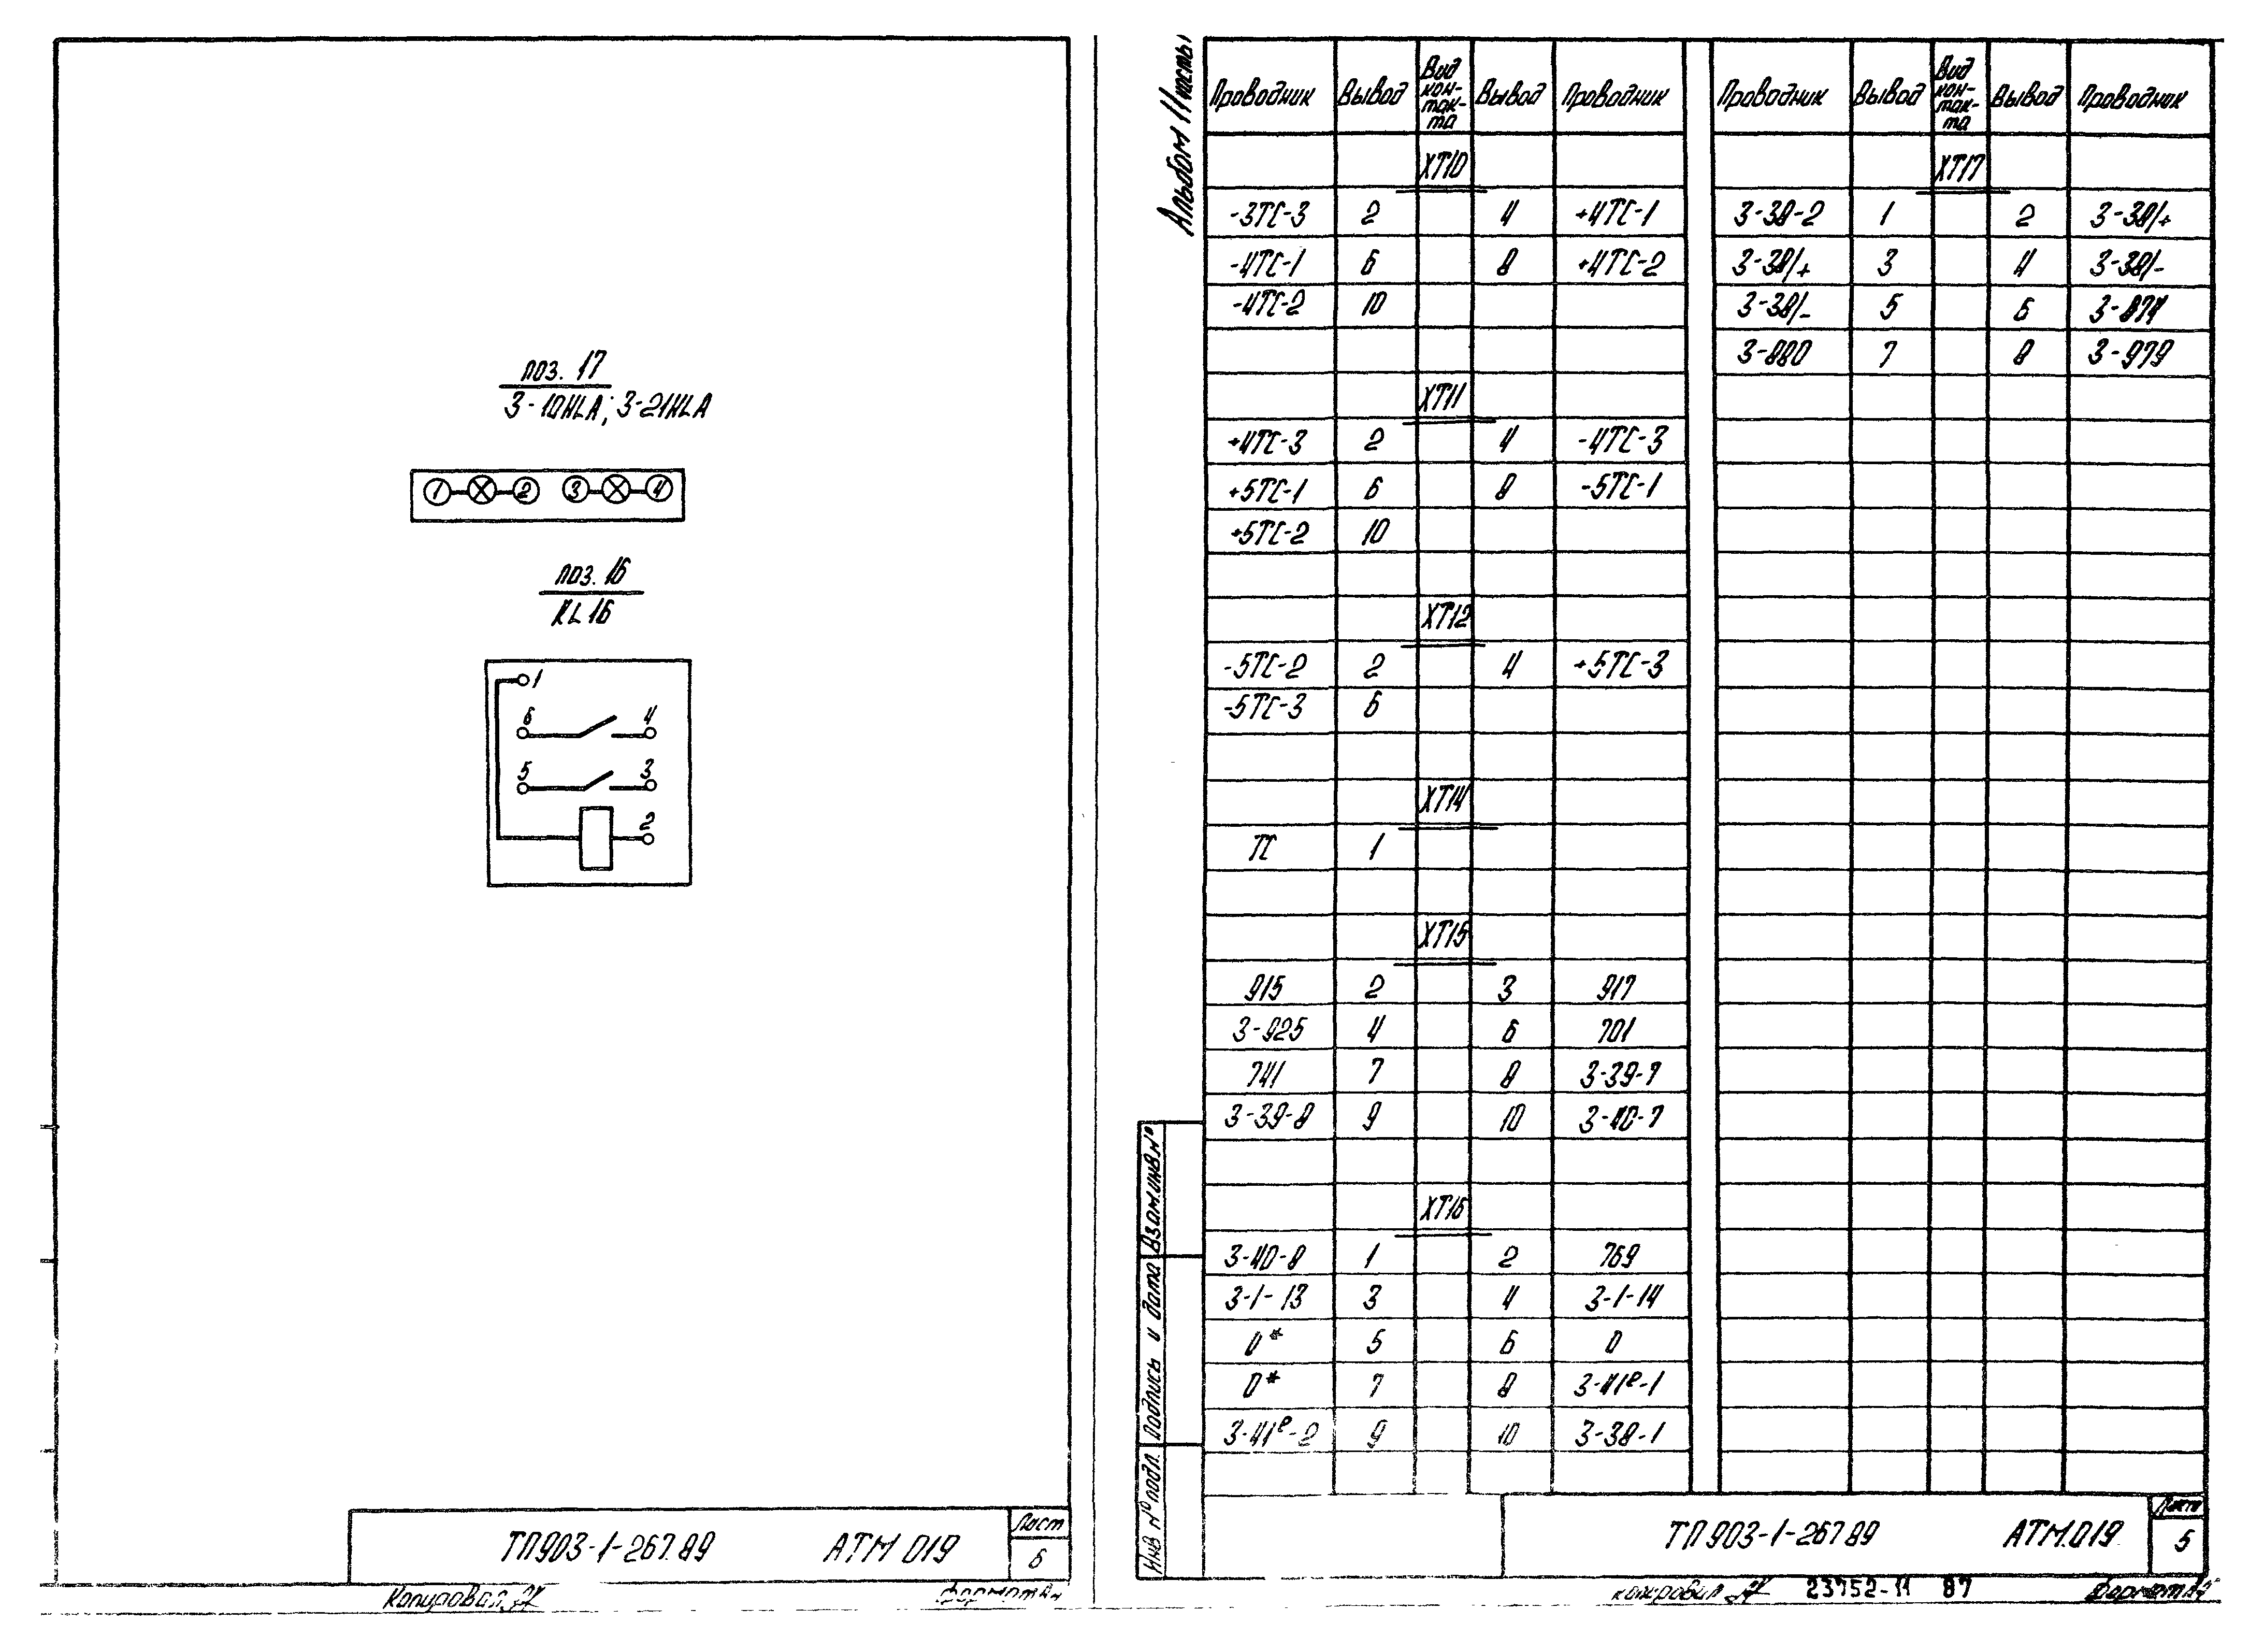 поз. 17
3-10HLA; 3-21HLA
1 2 3 4
поз. 16
KL16
1
6 4
5 3
2
ТП903-1-267.89 АТМ 019
Лист
6
Копировал
Альбом 11
Проводник Вывод Вид кон-так-та Вывод Проводник
ХТ10
-3ТС-3 2 4 +4ТС-1
-4ТС-1 6 8 +4ТС-2
-4ТС-2 10
ХТ11
+4ТС-3 2 4 -4ТС-3
+5ТС-1 6 8 -5ТС-1
+5ТС-2 10
ХТ12
-5ТС-2 2 4 +5ТС-3
-5ТС-3 6
ХТ14
ТС 1
ХТ15
915 2 3 917
3-925 4 6 701
741 7 8 3-39-7
3-39-8 9 10 3-40-7
ХТ16
3-40-8 1 2 769
3-1-13 3 4 3-1-14
0* 5 6 0
0* 7 8 3-41р-1
3-41р-2 9 10 3-38-1
Проводник Вывод Вид кон-так-та Вывод Проводник
ХТ17
3-38-2 1 2 3-38/+
3-38/+ 3 4 3-38/-
3-38/- 5 6 3-874
3-880 7 8 3-979
Взам.инв.№
Подпись и дата
Инв №подл.
ТП903-1-267.89 АТМ.019
Лист
5
копировал 23752-11 87